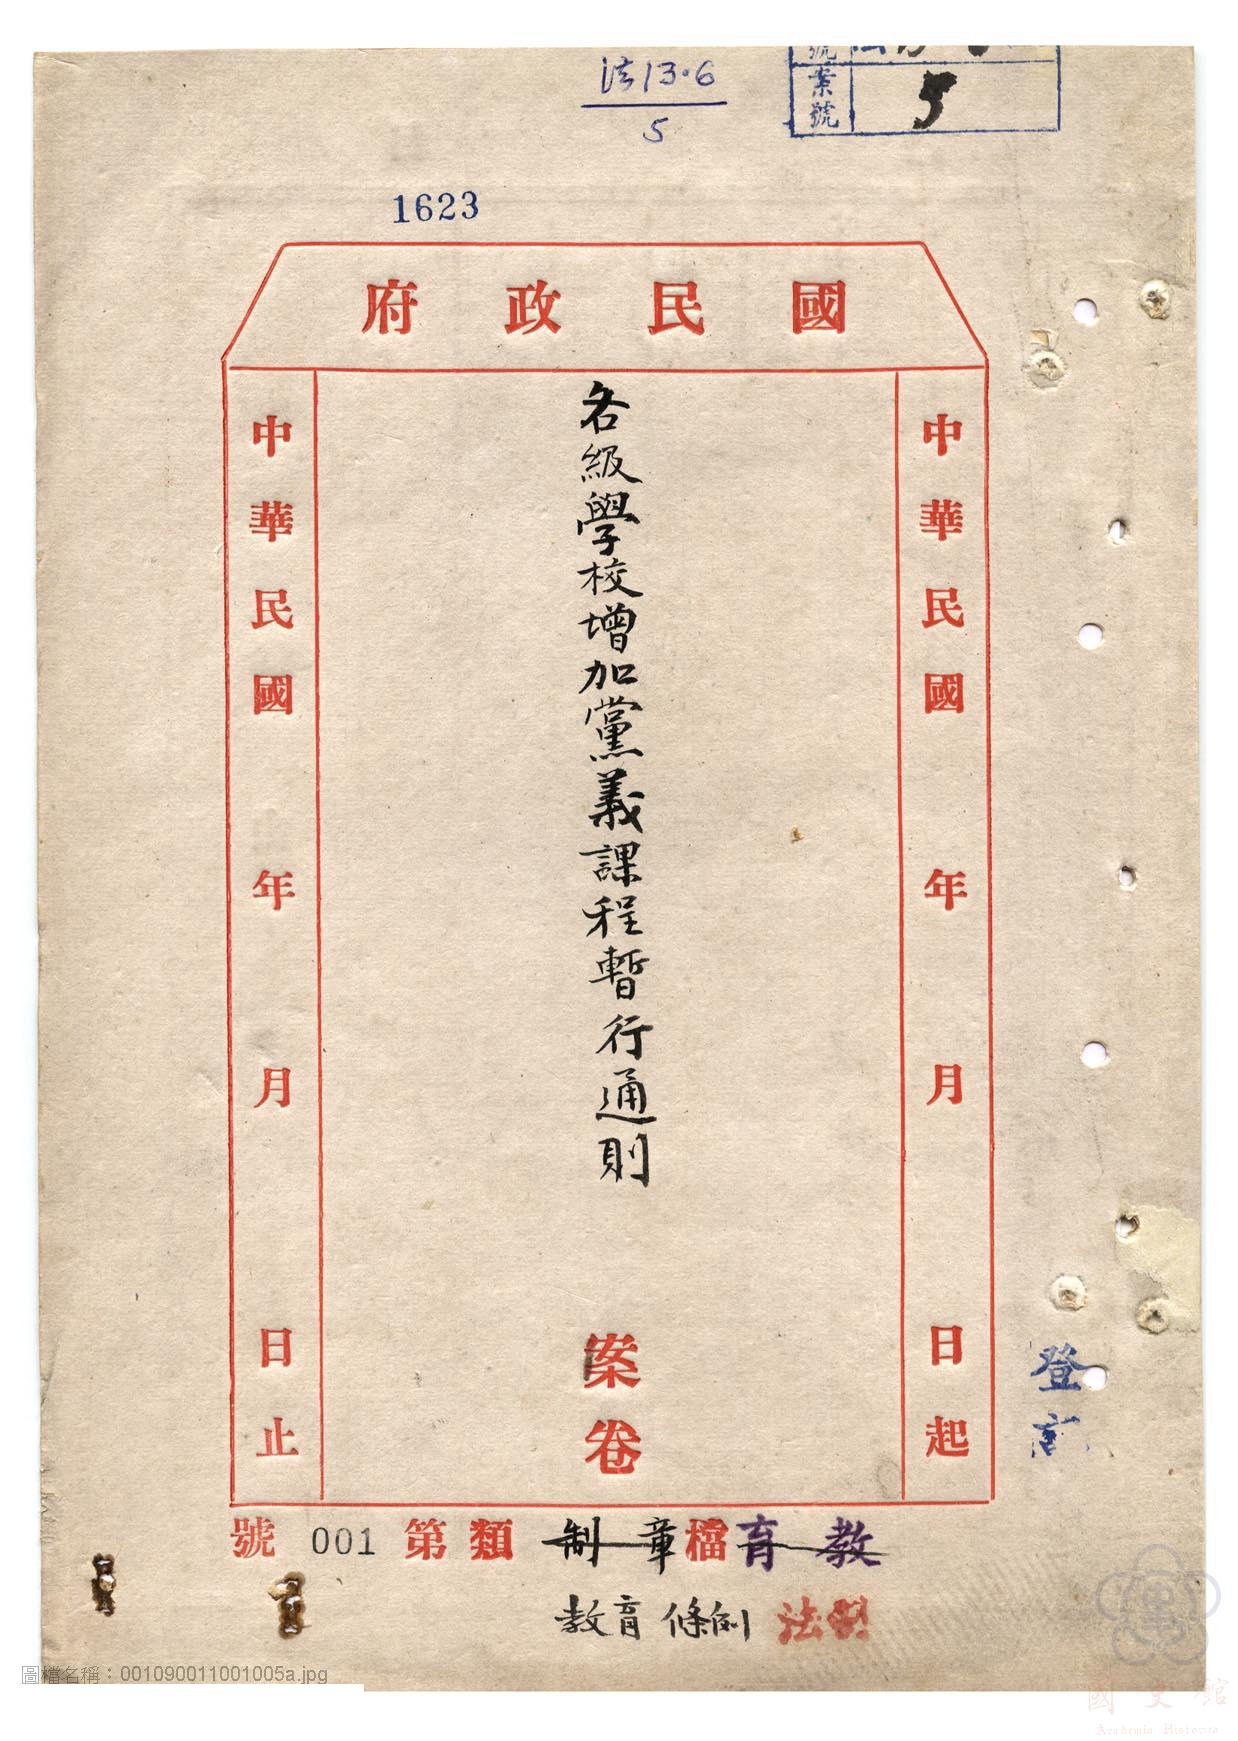 法13.6
5
案號
5
1623
國民政府
中華民國 年 月 日起
各級學校增加黨義課程暫行通則
案卷
中華民國 年 月 日止
教育檔章制類第001號
法制
教育條例
登
圖檔名稱：001090011001005a.jpg
國史館
Academia Historica